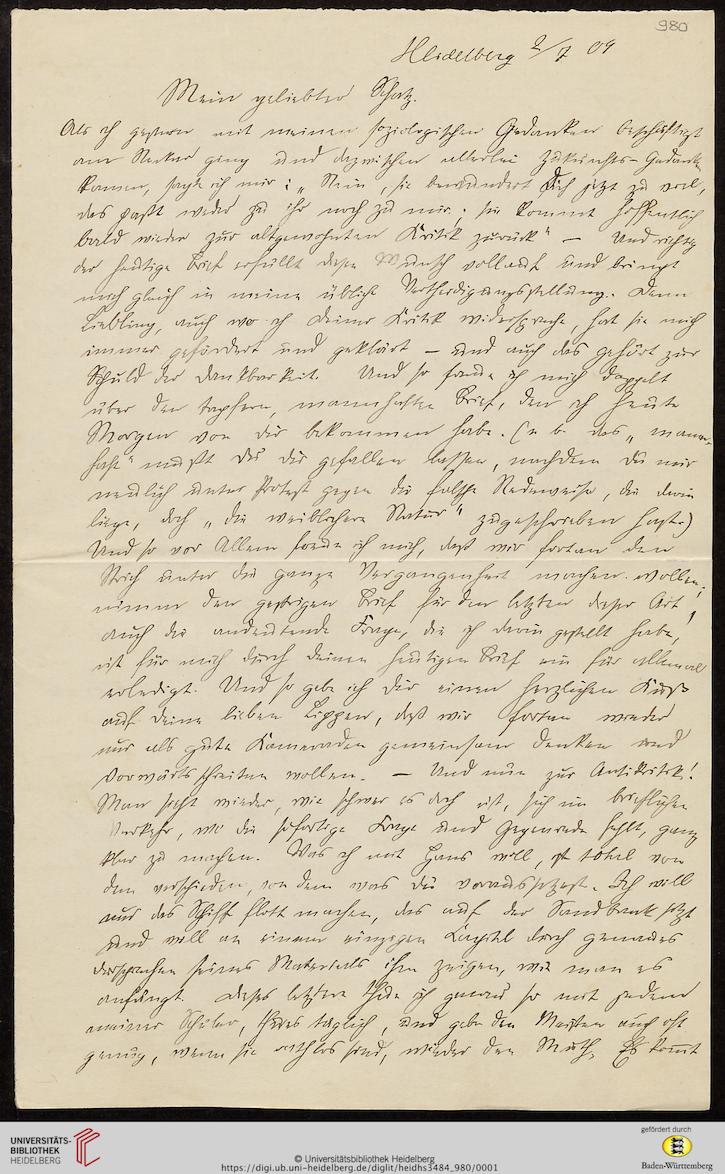 980
Heidelberg 2/7 09
Mein geliebter Schatz.
Als ich gestern mit meinen soziologischen Gedanken beschäftigt
am Neckar ging und dazwischen allerlei Zukunfts-Gedanken
kamen, sagte ich mir: „Nein, sie bewundert Dich jetzt zu viel,
das paßt weder zu ihr noch zu mir; sie kommt hoffentlich
bald wieder zur altgewohnten Kritik zurück“ – Und richtig
der heutige Brief erfüllt diesen Wunsch vollauf und bringt
mich gleich in meine übliche Vertheidigungsstellung. Denn
Liebling, auch wo ich Deiner Kritik widerspreche, hat sie mich
immer gefördert und geklärt – und auch das gehört zur
Schuld der Dankbarkeit. Und so freue ich mich doppelt
über den tapfern, mannhaften Brief, den ich heute
Morgen von Dir bekommen habe. (n. b. das „mann-
haft“ mußt Du Dir gefallen lassen, nachdem Du mir
neulich unter Protest gegen die falsche Redeweise, die darin
liege, doch „die weiblichere Natur“ zugeschrieben hast.)
Und so vor Allem freue ich mich, daß wir fortan den
Strich unter die ganze Vergangenheit machen wollen;
nimm den gestrigen Brief für den letzten dieser Art;
auch die andeutende Frage, die ich darin gestellt habe,
ist für mich durch Deinen heutigen Brief ein für allemal
erledigt. Und so gebe ich Dir einen herzlichen Kuß
auf Deine lieben Lippen, daß wir fortan wieder
nur als gute Kameraden gemeinsam denken und
vorwärts schreiten wollen. – Und nun zur Antikritik!
Man sieht wieder, wie schwer es doch ist, sich im brieflichen
Verkehr, wo die sofortige Frage und Gegenrede fehlt, ganz
klar zu machen. Was ich mit Hans will, ist total von
dem verschieden, von dem was Du voraussetzest. Ich will
nur das Schiff flott machen, das auf der Sandbank sitzt
und will an einem einzigen Kapitel durch genaues
Durchsprechen seines Materials ihm zeigen, wie man es
anfängt. Dieses letztere thue ich genau so mit jedem
meiner Schüler, thue es täglich, und gebe den Meisten auch oft
genug, wenn sie rathlos sind, wieder den Muth. Es kommt
UNIVERSITÄTS-
BIBLIOTHEK
HEIDELBERG
© Universitätsbibliothek Heidelberg
https://digi.ub.uni-heidelberg.de/diglit/heidhs3484_980/0001
gefördert durch
Baden-Württemberg